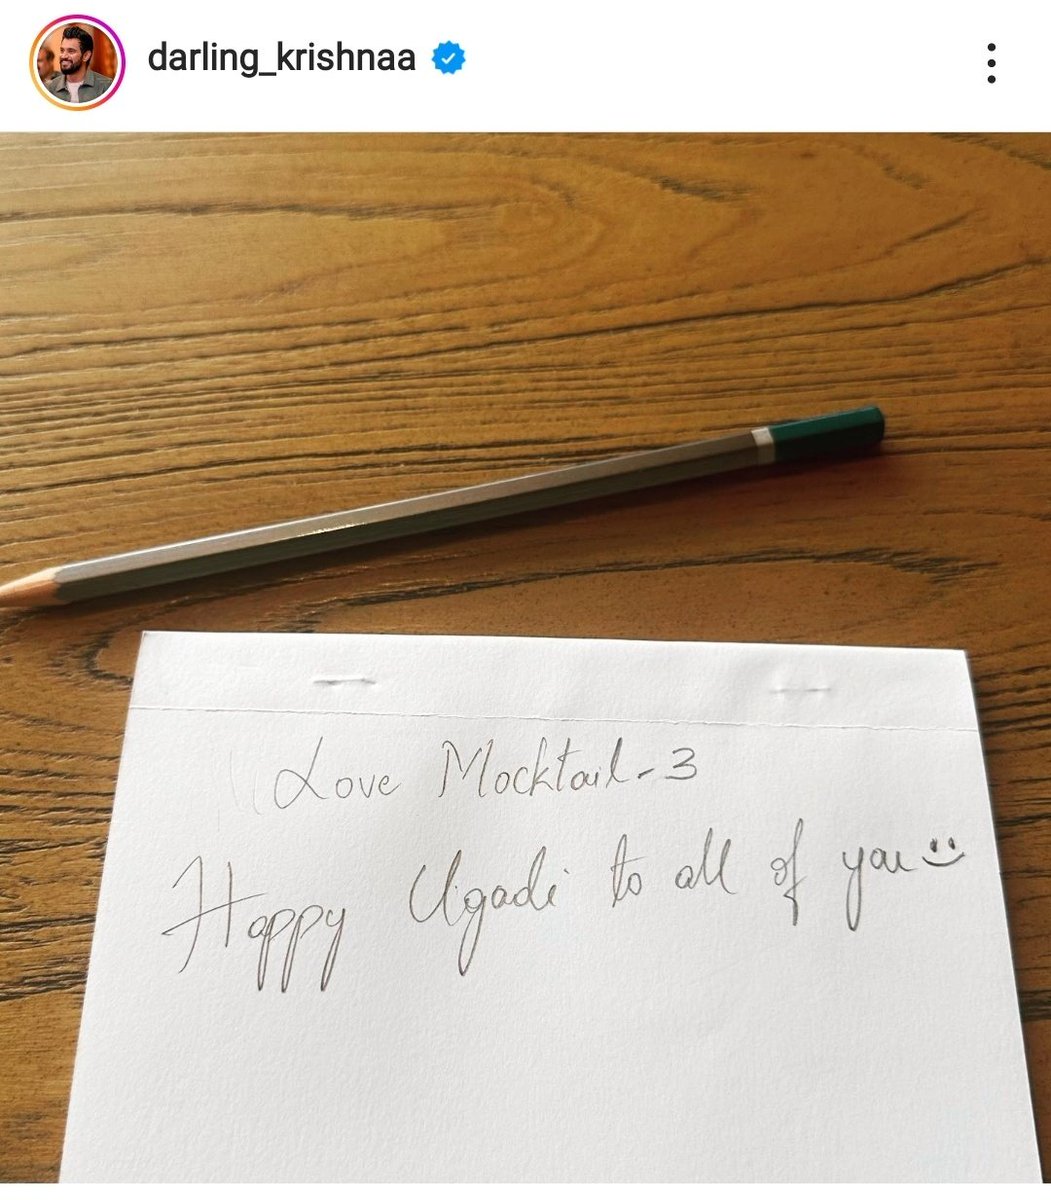 darling_krishnaa
Love Mocktail-3
Happy Ugadi to all of you